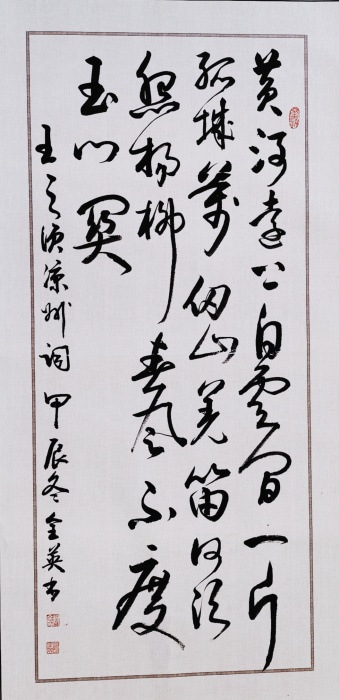 黄河远上白云间一片
孤城万仞山羌笛何须
怨杨柳春风不度
玉门关
王之涣凉州词甲辰冬金英书